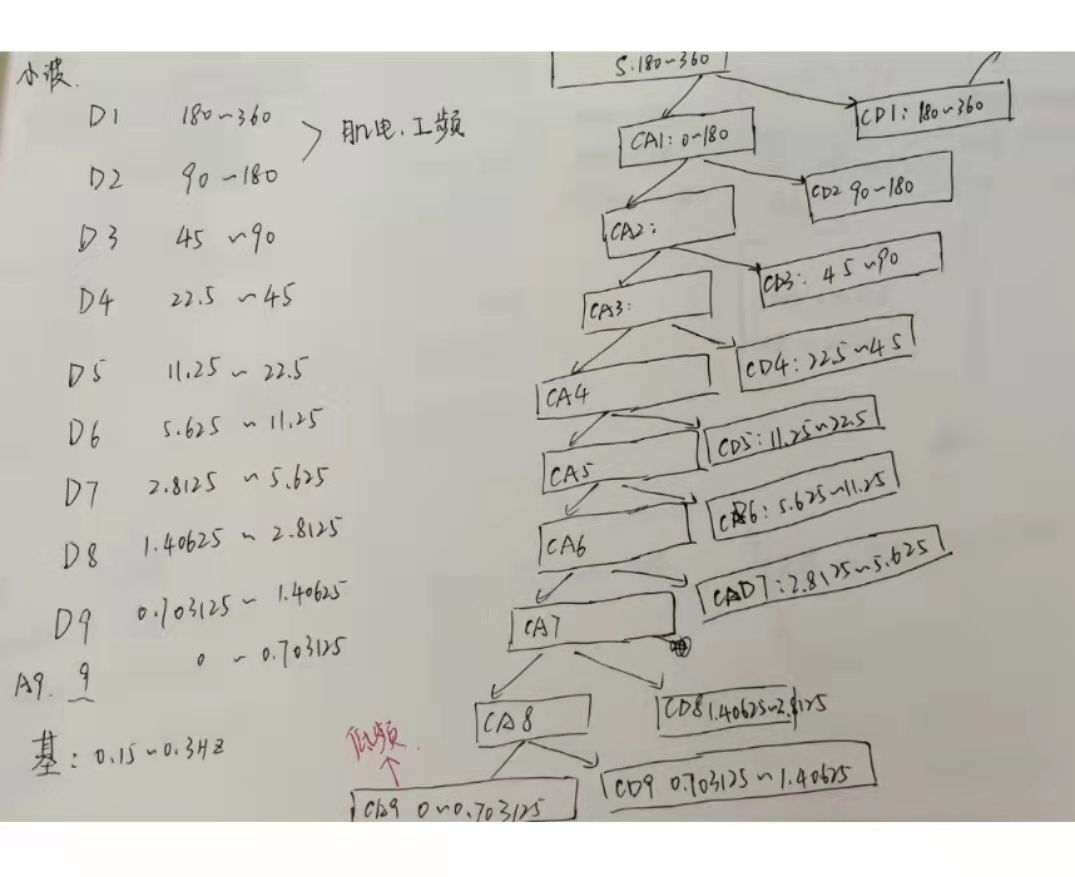 小波.
D1 180~360
肌电.工频
D2 90~180
D3 45~90
D4 22.5~45
D5 11.25~22.5
D6 5.625~11.25
D7 2.8125~5.625
D8 1.40625~2.8125
D9 0.703125~1.40625
A9. 9 0~0.703125
基: 0.15~0.3HZ
S:180~360
CD1: 180~360
CA1: 0~180
CD2 90~180
CA2:
CD3: 45~90
CA3:
CD4: 22.5~45
CA4
CD5: 11.25~22.5
CA5
CD6: 5.625~11.25
CA6
CAD7: 2.8125~5.625
CA7
CD8 1.40625~2.8125
CA8
低频.
CD9 0.703125~1.40625
CA9 0~0.703125